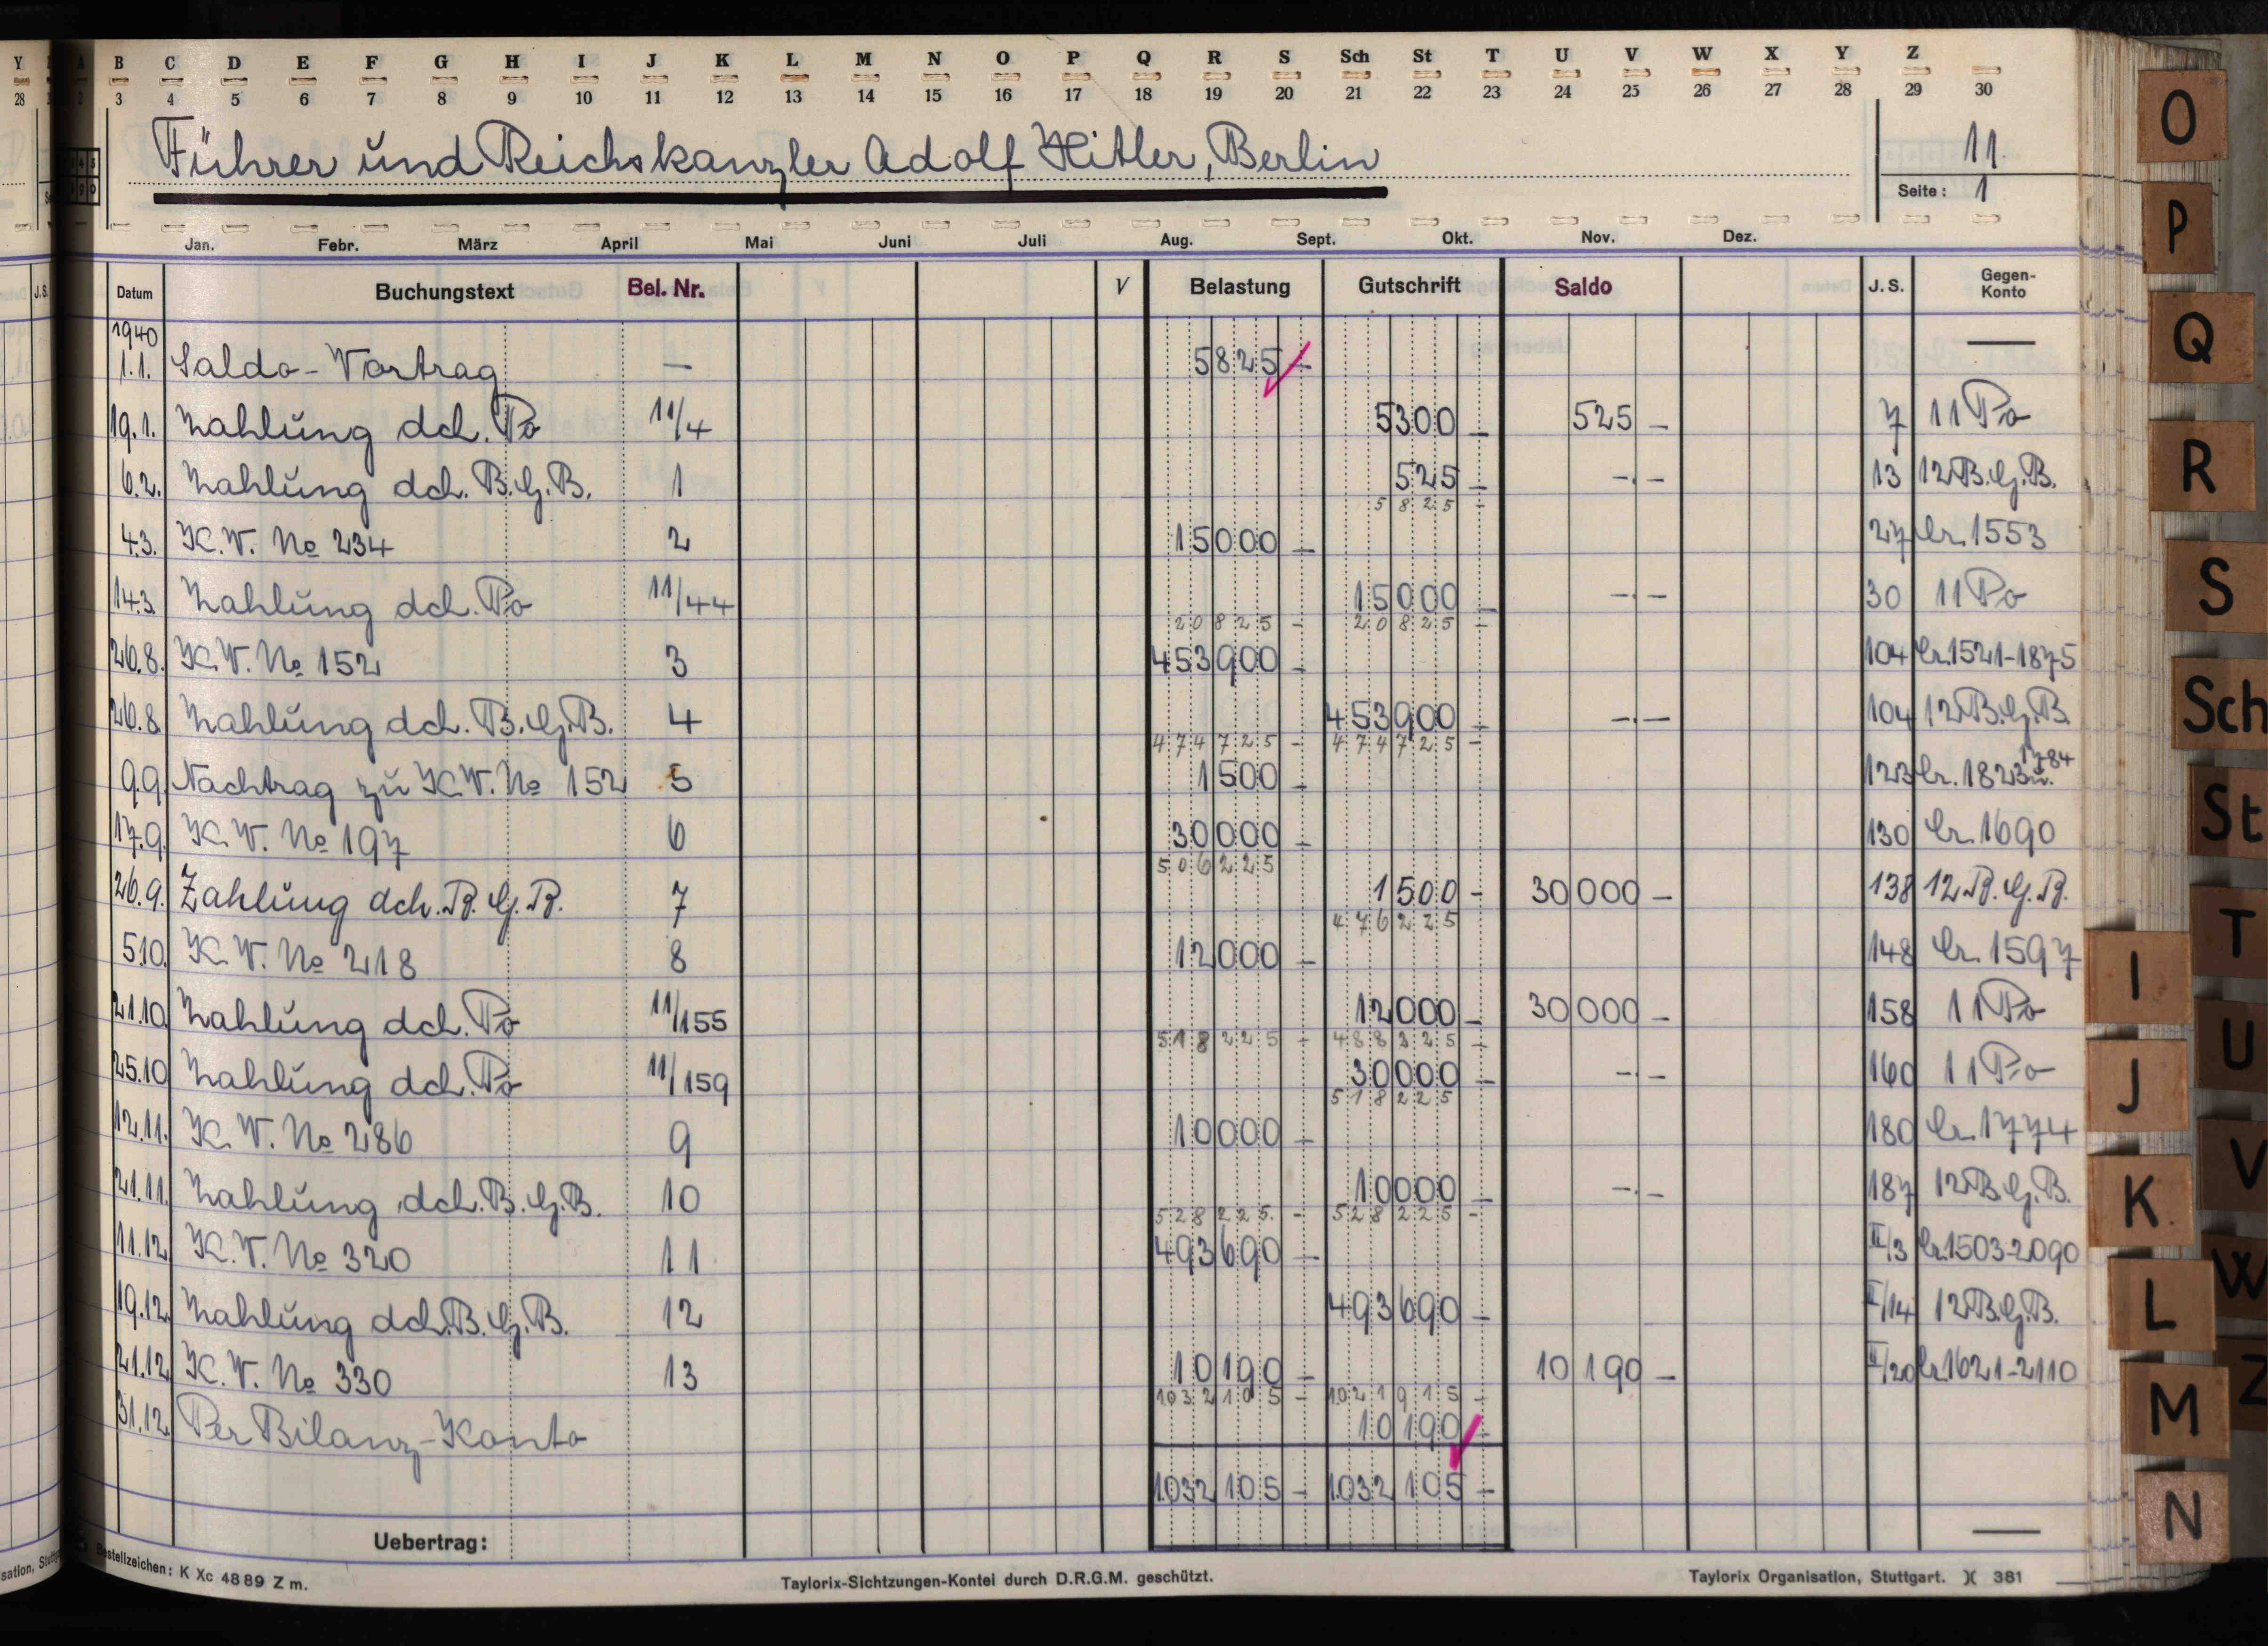 Y B C D E F G H I J K L M N O P Q R S Sch St T U V W X Y Z
28 3 4 5 6 7 8 9 10 11 12 13 14 15 16 17 18 19 20 21 22 23 24 25 26 27 28 29 30
Führer und Reichskanzler Adolf Hitler, Berlin 11.
Seite: 1
Jan. Febr. März April Mai Juni Juli Aug. Sept. Okt. Nov. Dez.
J.S. Datum Buchungstext Bel. Nr. V Belastung Gutschrift Saldo J.S. Gegen-Konto
1940
1.1. Saldo-Vortrag — 5825 – —
19.1. Zahlung dch. Po 11/4 5300 – 525 – 7 11 Po
6.2. Zahlung dch. B.G.B. 1 525 – -.- 13 12 B.G.B.
5825 –
4.3. K.V. No 234 2 15000 – 27 Cr. 1553
14.3. Zahlung dch. Po 11/44 15000 – -.- 30 11 Po
20825 – 20825 –
26.8. K.V. No 152 3 453900 – 104 Cr. 1521-1875
26.8. Zahlung dch. B.G.B. 4 453900 – -.- 104 12 B.G.B.
474725 – 474725 –
9.9. Nachtrag zu K.V. No 152 5 1500 – 123 Cr. 1823 u. 1784
17.9. K.V. No 197 6 30000 – 130 Cr. 1690
506225
26.9. Zahlung dch. B.G.B. 7 1500 – 30000 – 138 12 B.G.B.
476225
5.10. K.V. No 218 8 12000 – 148 Cr. 1597
21.10. Zahlung dch. Po 11/155 12000 – 30000 – 158 11 Po
518225 – 488225 –
25.10. Zahlung dch. Po 11/159 30000 – -.- 160 11 Po
518225
12.11. K.V. No 286 9 10000 – 180 Cr. 1774
21.11. Zahlung dch. B.G.B. 10 10000 – -.- 187 12 B.G.B.
528225. – 528225 –
11.12. K.V. No 320 11 493690 – II/3 Cr. 1503-2090
19.12. Zahlung dch. B.G.B. 12 493690 – II/14 12 B.G.B.
21.12. K.V. No 330 13 10190 – 10190 – II/20 Cr. 1621-2110
1032105 – 1021915 –
31.12. Per Bilanz-Konto 10190 –
1032105 – 1032105 –
Uebertrag: —
Bestellzeichen: K Xc 4889 Z m. Taylorix-Sichtzungen-Kontei durch D.R.G.M. geschützt. Taylorix Organisation, Stuttgart. )( 381
O
P
Q
R
S
Sch
St
T
U
V
W
Z
I
J
K
L
M
N